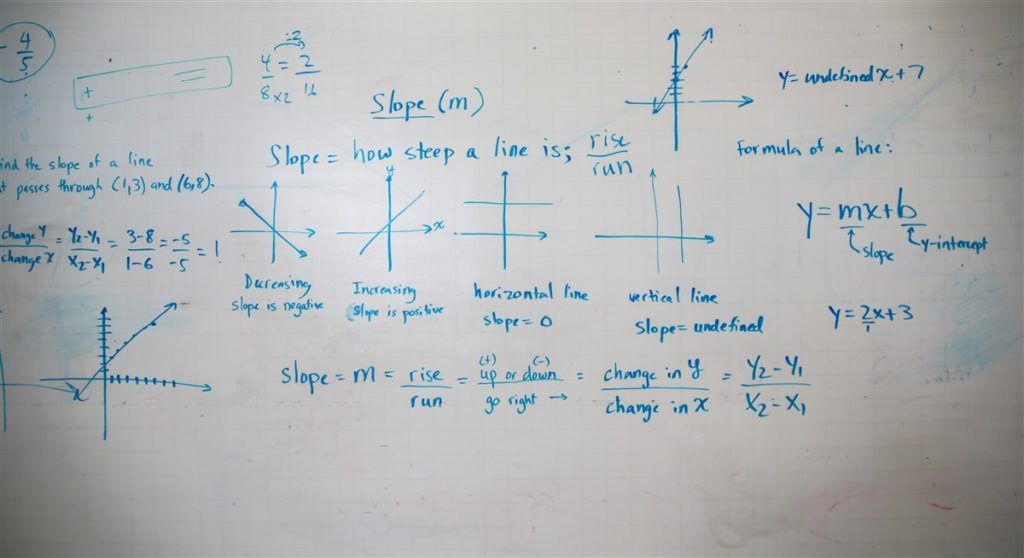 - 4/5
÷2
4/8 = 2/16
×2
+
+
Slope (m)
y= undefined x + 7
Slope = how steep a line is; rise/run
Formula of a line:
ind the slope of a line
t passes through (1,3) and (6,8).
change y/change x = Y2-Y1/X2-X1 = 3-8/1-6 = -5/-5 = 1
y
x
Decreasing
slope is negative
Increasing
slope is positive
horizontal line
slope = 0
vertical line
slope = undefined
y = mx + b
slope
y-intercept
y = 2/1x + 3
Slope = m = rise/run = (+) (-) up or down/go right → = change in y/change in x = Y2-Y1/X2-X1